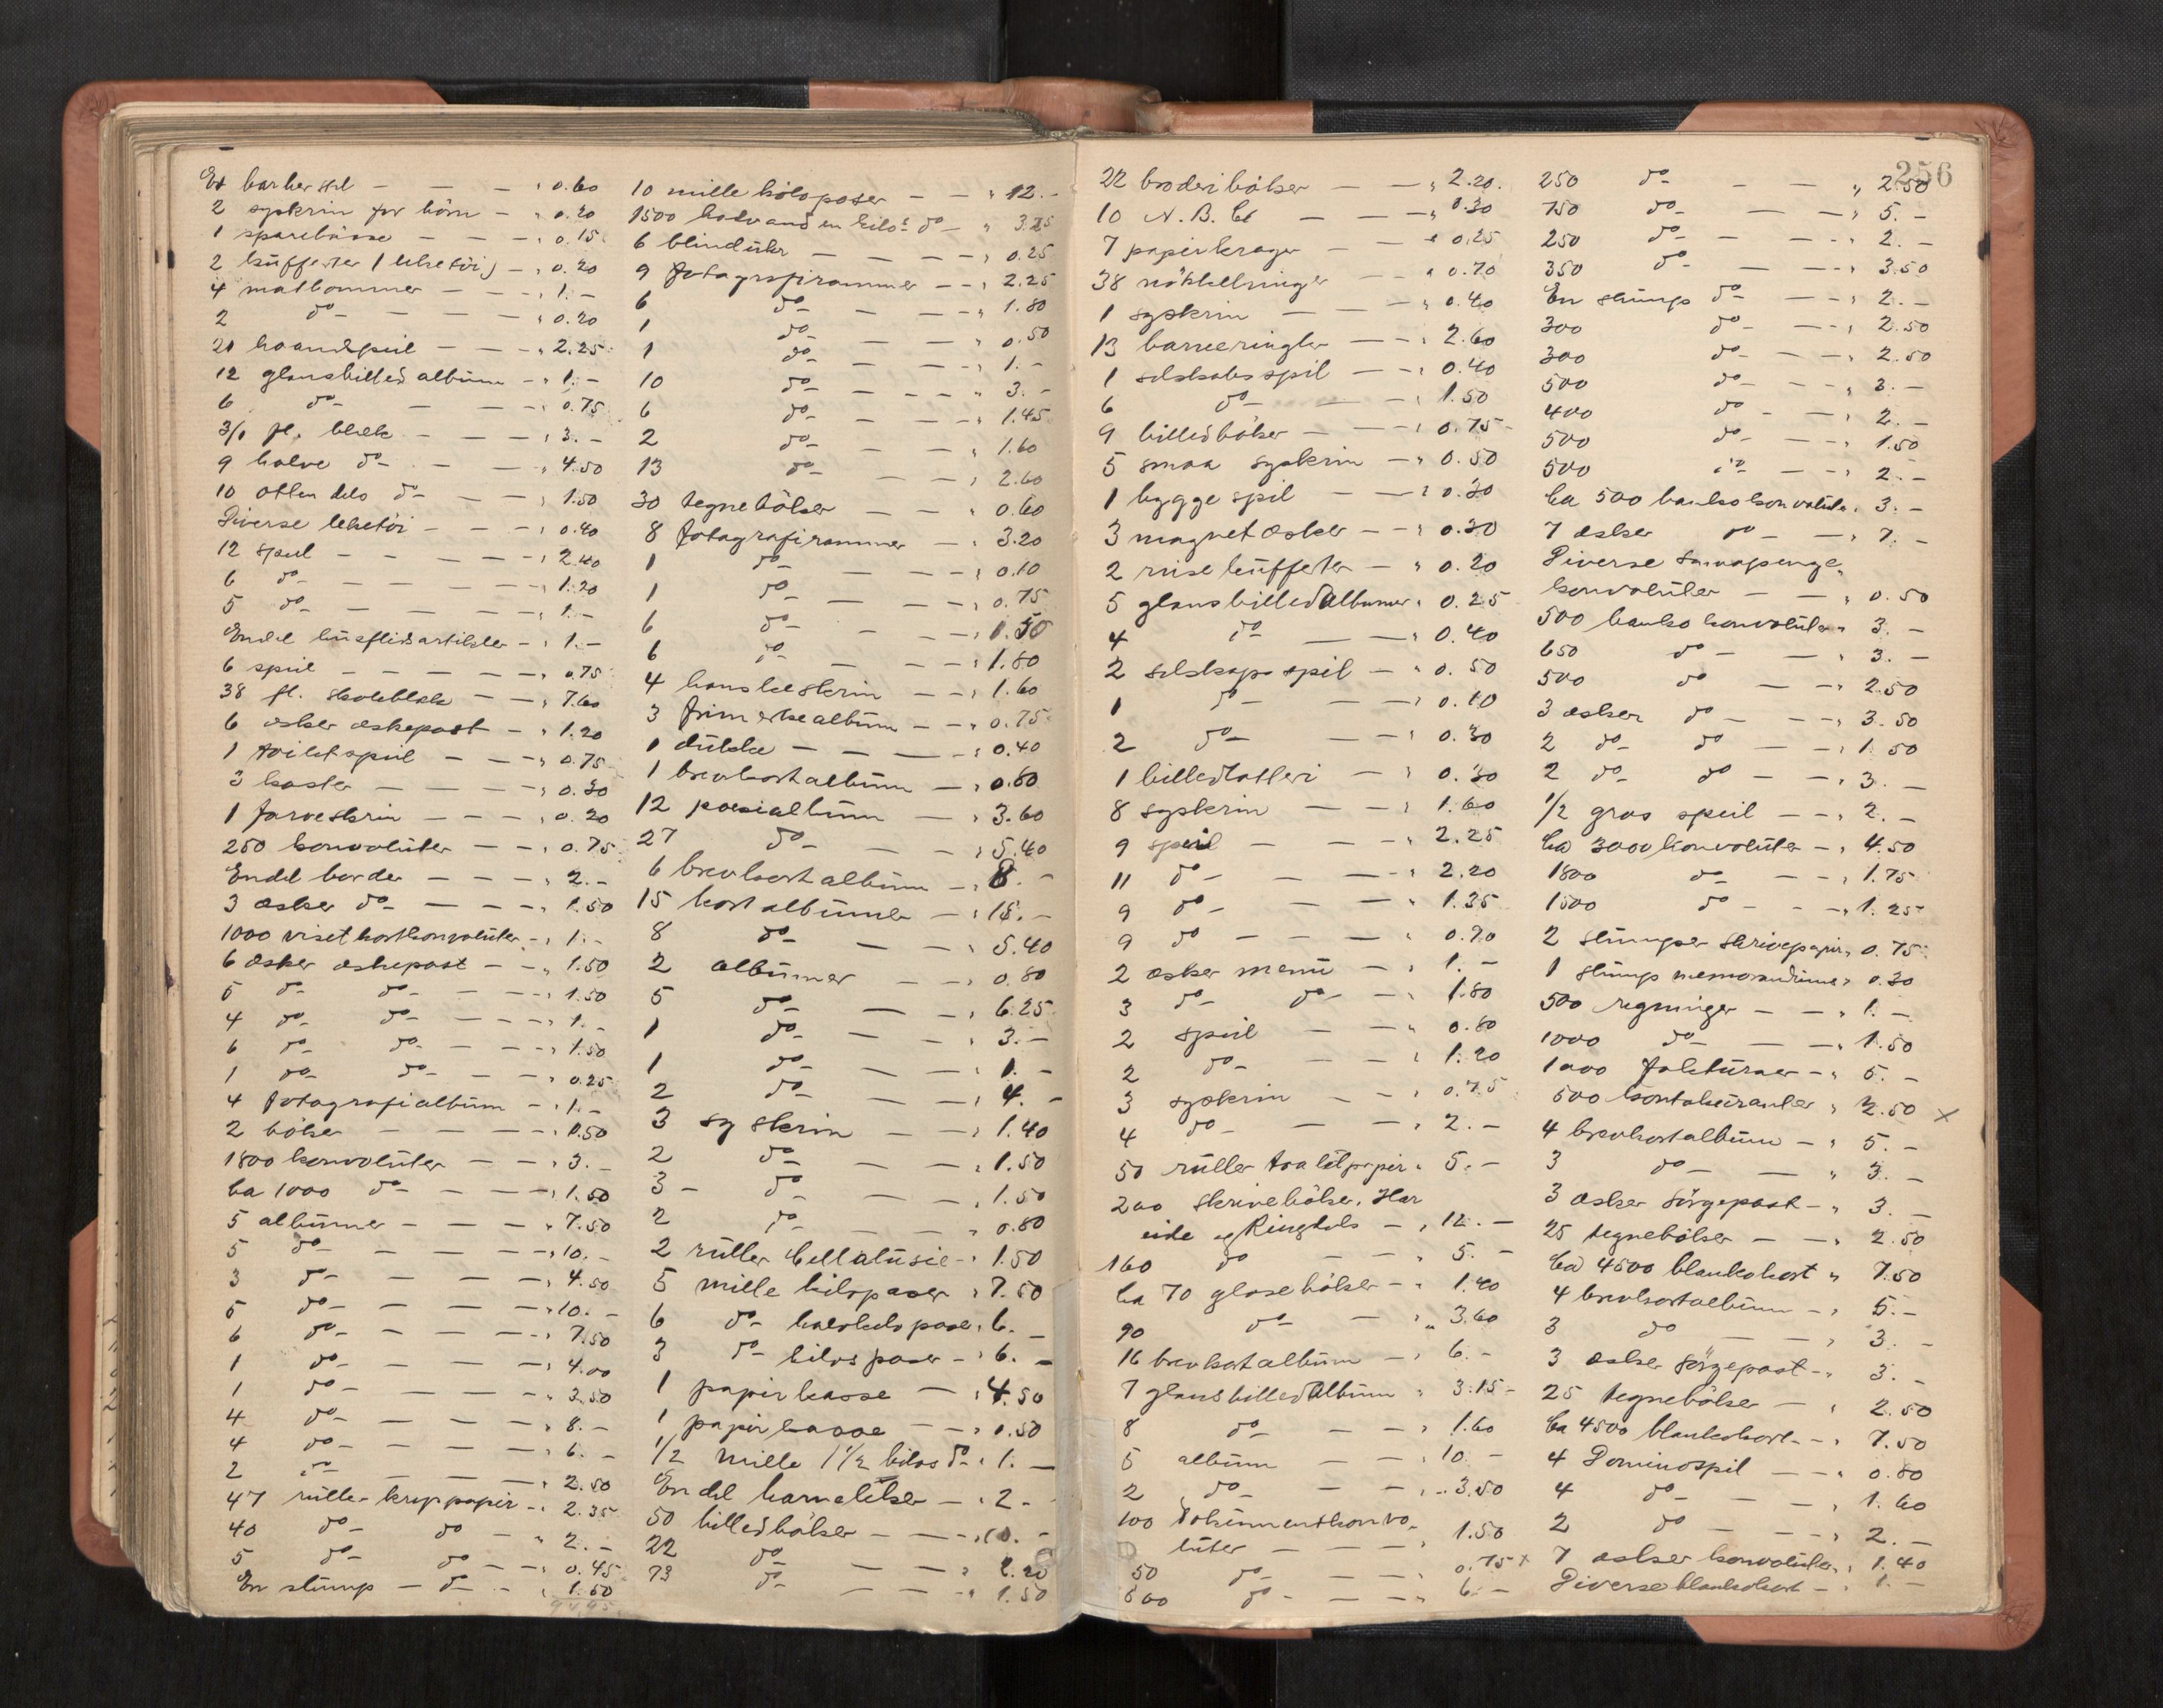 Et barber stel — — — " 0.60
2 syskrin for börn — " 0.20
1 sparebösse — — — " 0.15
2 kufferter (leketöi) — " 0.20
4 matbommer — — " 1.—
2 do — — — " 0.20
21 haandspeil — — " 2.25
12 glansbilled album — " 1.—
6 do — — " 0.75
3/1 fl. blæk — — — " 3.—
9 halve do — — — " 4.50
10 otten dels do — — " 1.50
Diverse leketöi — — — " 0.40
12 speil — — — " 2.40
6 do — — — " 1.20
5 do — — — " 1.—
Endel husflidsartikler — " 1.—
6 speil — — — — " 0.75
38 fl. skoleblæk — — " 7.60
6 æsker æskepost — " 1.20
1 toilet speil — — — " 0.75
3 koster — — — " 0.30
1 farveskrin — — — " 0.20
250 konvoluter — — " 0.75
Endel border — — — " 2.—
3 æsker do — — — " 1.50
1000 visetkortkonvoluter — " 1.—
6 æsker æskepost — — " 1.50
5 do do — — — " 1.50
4 do do — — — " 1.—
6 do do — — — " 1.50
1 do do — — — " 0.25
4 fotografialbum — " 1.—
2 böker — — — " 0.50
1800 konvoluter — — " 3.—
Ca 1000 do — — — " 1.50
5 albumer — — — " 7.50
5 do — — — " 10.—
3 do — — — " 4.50
5 do — — — " 10.—
6 do — — — " 7.50
1 do — — — " 4.00
1 do — — — " 3.50
4 do — — — " 8.—
4 do — — — " 6.—
2 do — — — " 2.50
47 ruller kreppapir — " 2.35
40 do do — " 2.—
5 do do — — " 0.45
En stump — do — " 1.50
10 mille kiloposer — — " 12.—
1500 halvand en kilos do — " 3.25
6 blindukr — — — " 0.25
9 fotografirammer — — " 2.25
6 do — — " 1.80
1 do — — " 0.50
1 do — — " 1.—
10 do — — — " 3.—
6 do — — — " 1.45
2 do — — " 1.60
13 do — — " 2.60
30 tegnebölker — — " 0.60
8 fotografirammer — " 3.20
1 do — — — " 0.10
1 do — — — " 0.75
6 do — — — " 1.50
6 do — — — " 1.80
4 hanskeskrin — — " 1.60
3 frimerkealbum — — " 0.75
1 dukke — — — " 0.40
1 brevkortalbum — " 0.80
12 poesialbum — — " 3.60
27 do — — — " 5.40
6 brevkortalbum — " 8.—
15 kortalbumer — " 15.—
8 do — — " 5.40
2 albumer — — " 0.80
5 do — — " 6.25
1 do — — " 3.—
1 do — — " 1.—
2 do — — " 4.—
3 syskrin — — " 1.40
2 do — — " 1.50
3 — do — — " 1.50
2 do — — " 0.80
2 ruller — " 1.50
5 mille kilsposer " 7.50
6 do halvkilo poser " 6.—
3 do kilos poser — " 6.—
1 papirkasse — " 4.50
1 papirkasse — — " 0.50
1/2 mille 1 1/2 kilos do " 1.—
Endel — " 2—
50 billedböker — — " 10.—
22 do — — " 2.20
73 do — — " 1.50
256
22 broderibölser — — " 2.20.
10 N. B. C — — — " 0.30
7 papirkrager — — " 0.25
38 nökkelringer — — " 0.70
1 syskrin — — " 0.40
13 barneringler — — " 2.60
1 selskabsspil — — " 0.40
6 do — — " 1.50
9 billedböker — — — " 0.75
5 smaa syskrin — " 0.50
1 bygge spil — — " 0.30
3 magnetæsker — — " 0.30
2 reisekufferter — " 0.20
5 glansbilledalbumer " 0.25
4 do — — " 0.40
2 selskaps spil — " 0.50
1 do — — — " 0.10
2 do — — " 0.30
1 billedlotteri — " 0.30
8 syskrin — — " 1.60
9 speil — — — " 2.25
11 do — — — — " 2.20
9 do — — — " 1.35
9 do — — — — " 0.70
2 æsker menu — " 1.—
3 do do — — " 1.80
2 speil — — " 0.80
2 do — — — " 1.20
3 syskrin — — " 0.75
4 do — — — " 2.—
50 ruller toaletpapir " 5.—
200 skriveböker. Har
eide og Ringdals — " 12.—
160 do — — " 5.—
Ca 70 gloseböker — " 1.40
90 do — " 3.60
16 brevkortalbum — " 6.—
7 glansbilledalbum " 3.15—
8 do — — " 1.60
5 album — — " 10.—
2 do — — " 3.50
100 Dokumentkonvo-
luter — — — 1.50
50 do — — — 0.75 x
600 do — — — " 6.—
250 do — — " 2.50
750 do — — " 5.—
250 do — — — " 2.—
350 do — — — " 3.50
En stump do — — " 2.—
300 do — — " 2.50
300 do — — — " 2.50
500 do — — " 3.—
400 do — — — " 2.—
500 do — — — " 1.50
500 do — — " 2.—
Ca 500 bankokonvoluter " 3.—
7 æsker do — — " 7.—
Diverse
konvoluter — — " 0.50
500 banko konvoluter " 3.—
650 do — — " 3.—
500 do — — " 2.50
3 æsker do — — — " 3.50
2 do do — — " 1.50
2 do do — — " 3.—
1/2 gros speil — — " 2.—
Ca 3000 konvoluter — " 4.50
1800 do — — " 1.75
1500 do — — " 1.25
2 stumper skrivepapir " 0.75
1 stump memorandumer " 0.30
500 regninger — — " 1.—
1000 do — — " 1.50
1000 fakturaer — " 5.—
500 kontokuranter " 2.50 x
4 brevkortalbum — " 5.—
3 do — — " 3.—
3 æsker sörgepost — " 3.—
25 tegnebölser — — " 2.50
Ca 4500 blankokort " 7.50
4 brevkortalbum — " 5.—
3 do — — " 3.—
3 æsker sörgepost — " 3.—
25 tegnebölser — " 2.50
Ca 4500 blankokort — " 7.50
4 Dominospil — — " 0.80
4 do — — " 1.60
2 do — — " 2.—
7 æsker konvoluter " 1.40
Diverse blankokort — " 1.—